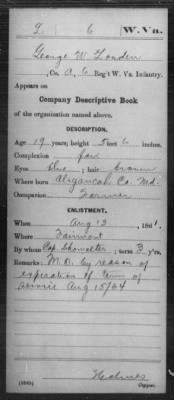 L 6 W. Va.
George W. Louden
, Co. A, 6 Reg't W. Va. Infantry.
Appears on
Company Descriptive Book
of the organization named above.
DESCRIPTION.
Age 19 years; height 5 feet 6 inches.
Complexion fair
Eyes blue; hair brown
Where born Co. Md
Occupation Farmer
ENLISTMENT.
When Aug 13, 1861.
Where Fairmont
By whom Cap. Showalter; term 3 y'rs.
Remarks: M.O. by reason of
expiration of term of
service Aug 15/64
Holmes
Copyist.